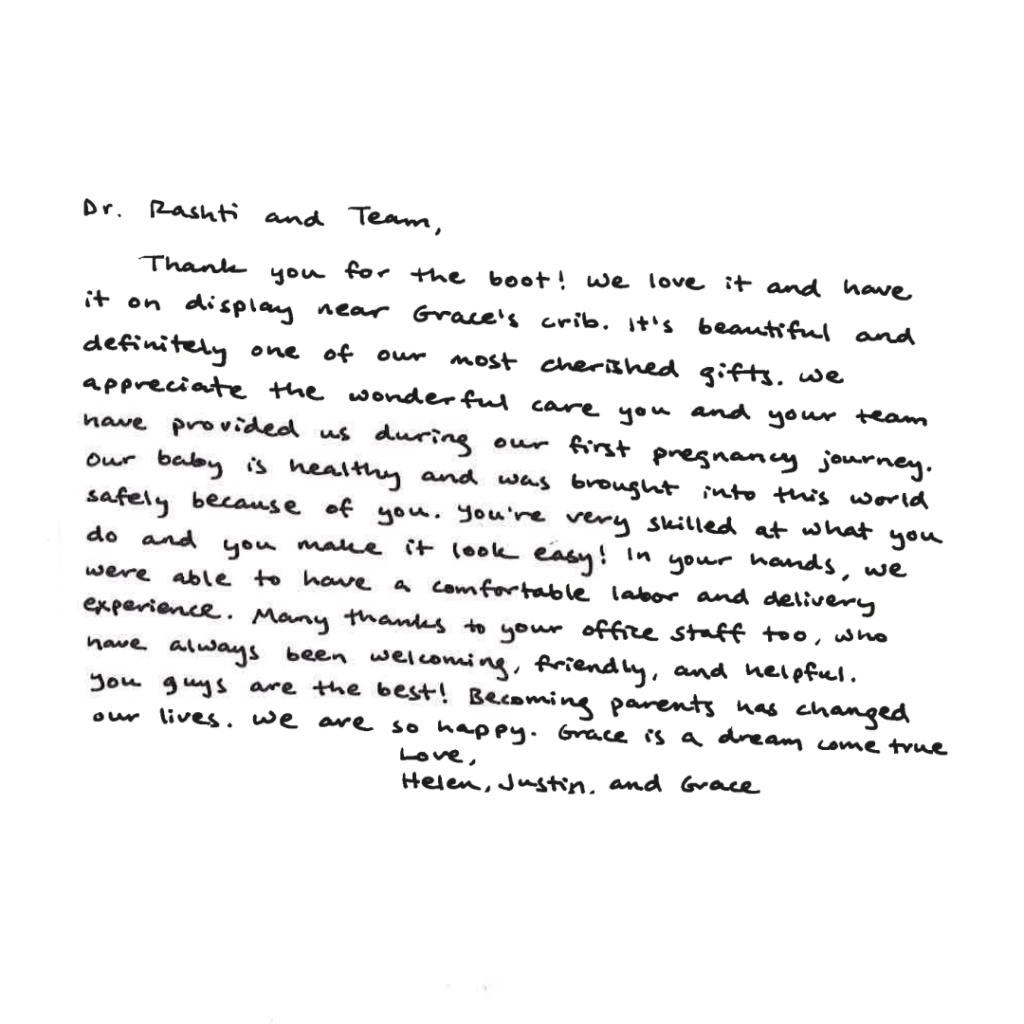 Dr. Rashti and Team,
Thank you for the boot! We love it and have
it on display near Grace's crib. It's beautiful and
definitely one of our most cherished gifts. We
appreciate the wonderful care you and your team
have provided us during our first pregnancy journey.
Our baby is healthy and was brought into this world
safely because of you. You're very skilled at what you
do and you make it look easy! In your hands, we
were able to have a comfortable labor and delivery
experience. Many thanks to your office staff too, who
have always been welcoming, friendly, and helpful.
You guys are the best! Becoming parents has changed
our lives. We are so happy. Grace is a dream come true
Love,
Helen, Justin, and Grace